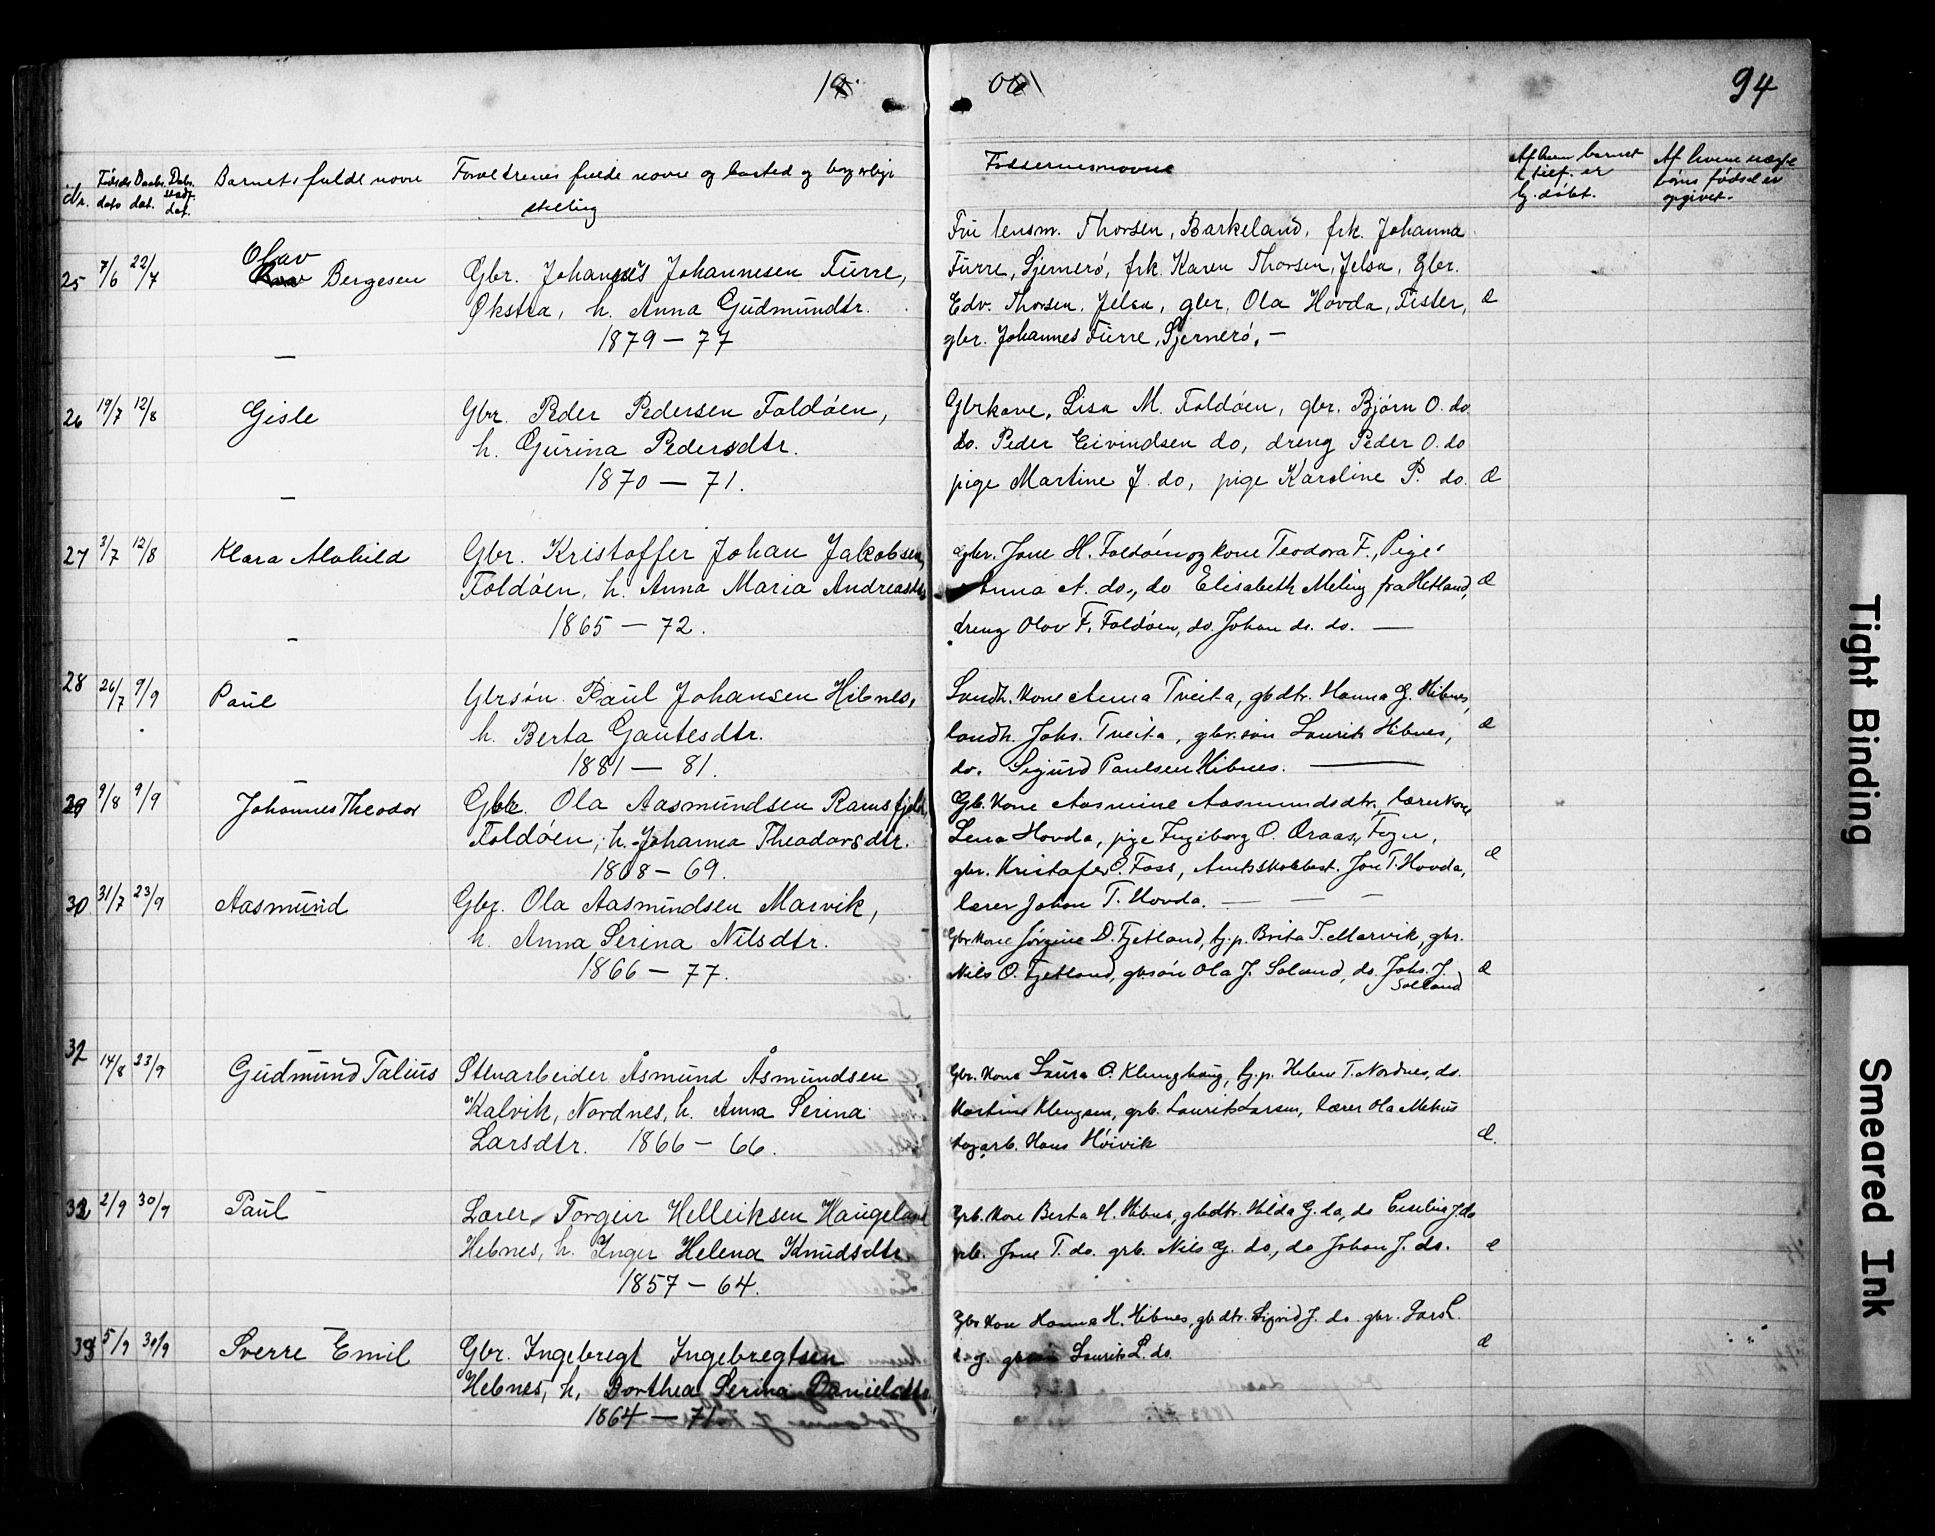 19
00
94
Nr.
Fødsels dato
Daabs dat.
Daabs stadf. dat.
Barnets fulde navn
Forældrenes fulde navne og bosted og borgerlige
stilling
Faddernes navne
Af hvem barnet
er
hj. døbt.
Af hvem
børns fødsel er
opgivet.
25 7/6 22/7
Olav
Bergesen
Gbr. Johannes Johannesen Furre,
Økstra, h. Anna Gudmundtr.
1879 — 77
Fru lensm. Thorsen, Barkeland, frk. Johanna
Furre, Sjernerö, frk. Karen Thorsen, Jelsa, gbr.
Edv. Thorsen, Jelsa, gbr. Ola Hovda, Fister,
gbr. Johannes Furre, Sjernerö, —
26 19/7 12/8
Gisle
Gbr. Peder Pedersen Foldöen,
h. Gurina Pedersdtr.
1870 — 71.
Gbrkone, Lisa M. Foldöen, gbr. Bjørn O. do
do. Peder Eivindsen do, dreng Peder O. do
pige Martine J. do, pige Karoline P. do.
27 3/7 12/8
Klara Alvhild
Gbr. Kristoffer Johan Jakobsen,
Foldöen, h. Anna Maria Andreasdtr.
1865 — 72.
Gbr. Jone H. Foldöen og kone Teodora F., Pige
Anna A. do., do Elisabeth Meling fra Hetland,
dreng Olav F. Foldöen, do. Johan do. do. —
28 26/7 9/9
Paul
Gbrsøn Paul Johansen Hibnes,
h. Berta Gautesdtr.
1881 — 81.
Landh. kone Anna Tveita, gbdtr. Hanna G. Hibnes,
landh. Johs. Tveita, gbr.søn Laurits Hibnes,
do. Sigurd Paulsen Hibnes. —
29 9/8 9/9
Johannes Theodor
Gbr. Ola Aasmundsen Ramsfjeld,
Foldöen, h. Johanna Theodorsdtr.
1868 — 69.
Gb. kone Aasmine Aasmundsdtr., lærerkone
Lena Hovda, pige Ingeborg O. Fogn,
gbr. Kristofer O. Foss, Amtsskolebest. Jon T. Hovda,
lærer Johan T. Hovda. — — —
30 31/7 23/9
Aasmund
Gbr. Ola Aasmundsen Marvik,
h. Anna Serina Nilsdtr.
1866 — 77.
Gbr kone Jørgine D. Fjetland, tj.p. Brita T. Marvik, gbr.
Nils O. Fjetland, gbsøn Ola J. Soland, do. Johs. J.
Solland
14/8 23/9
Gudmund Talius
Stenarbeider Åsmund Åsmundsen
Kalvik, Nordnes, h. Anna Serina
Larsdtr. 1866 — 66.
Gbr. kone Laura O. Klunghaug, tj.p. Helene T. Nordnes, do.
Martine Klengsen, grb. Laurits Larsen, lærer Ola Mehus
Hans Høivik
32 2/9 30/9
Paul
Lærer Torgeir Helleiksen Haugeland
Hebnes, h. Inger Helena Knudsdtr.
1857 — 64.
Grb. kone Berta H. Hibnes, gbdtr. Hilda G. do, do Cecilia J. do
grb. Jone T. do. grb. Nils G. do., do Johan J. do.
33 5/9 30/9
Sverre Emil
Gbr. Ingebregt Ingebregtsen
Hebnes, h. Dorthea Serina Danielsdtr,
1864 — 71
Gbr kone Hanna H. Hibnes, gbdtr. Sigrid J. do gbr. Lars L.
Laurits L. do
Tight Binding
Smeared Ink